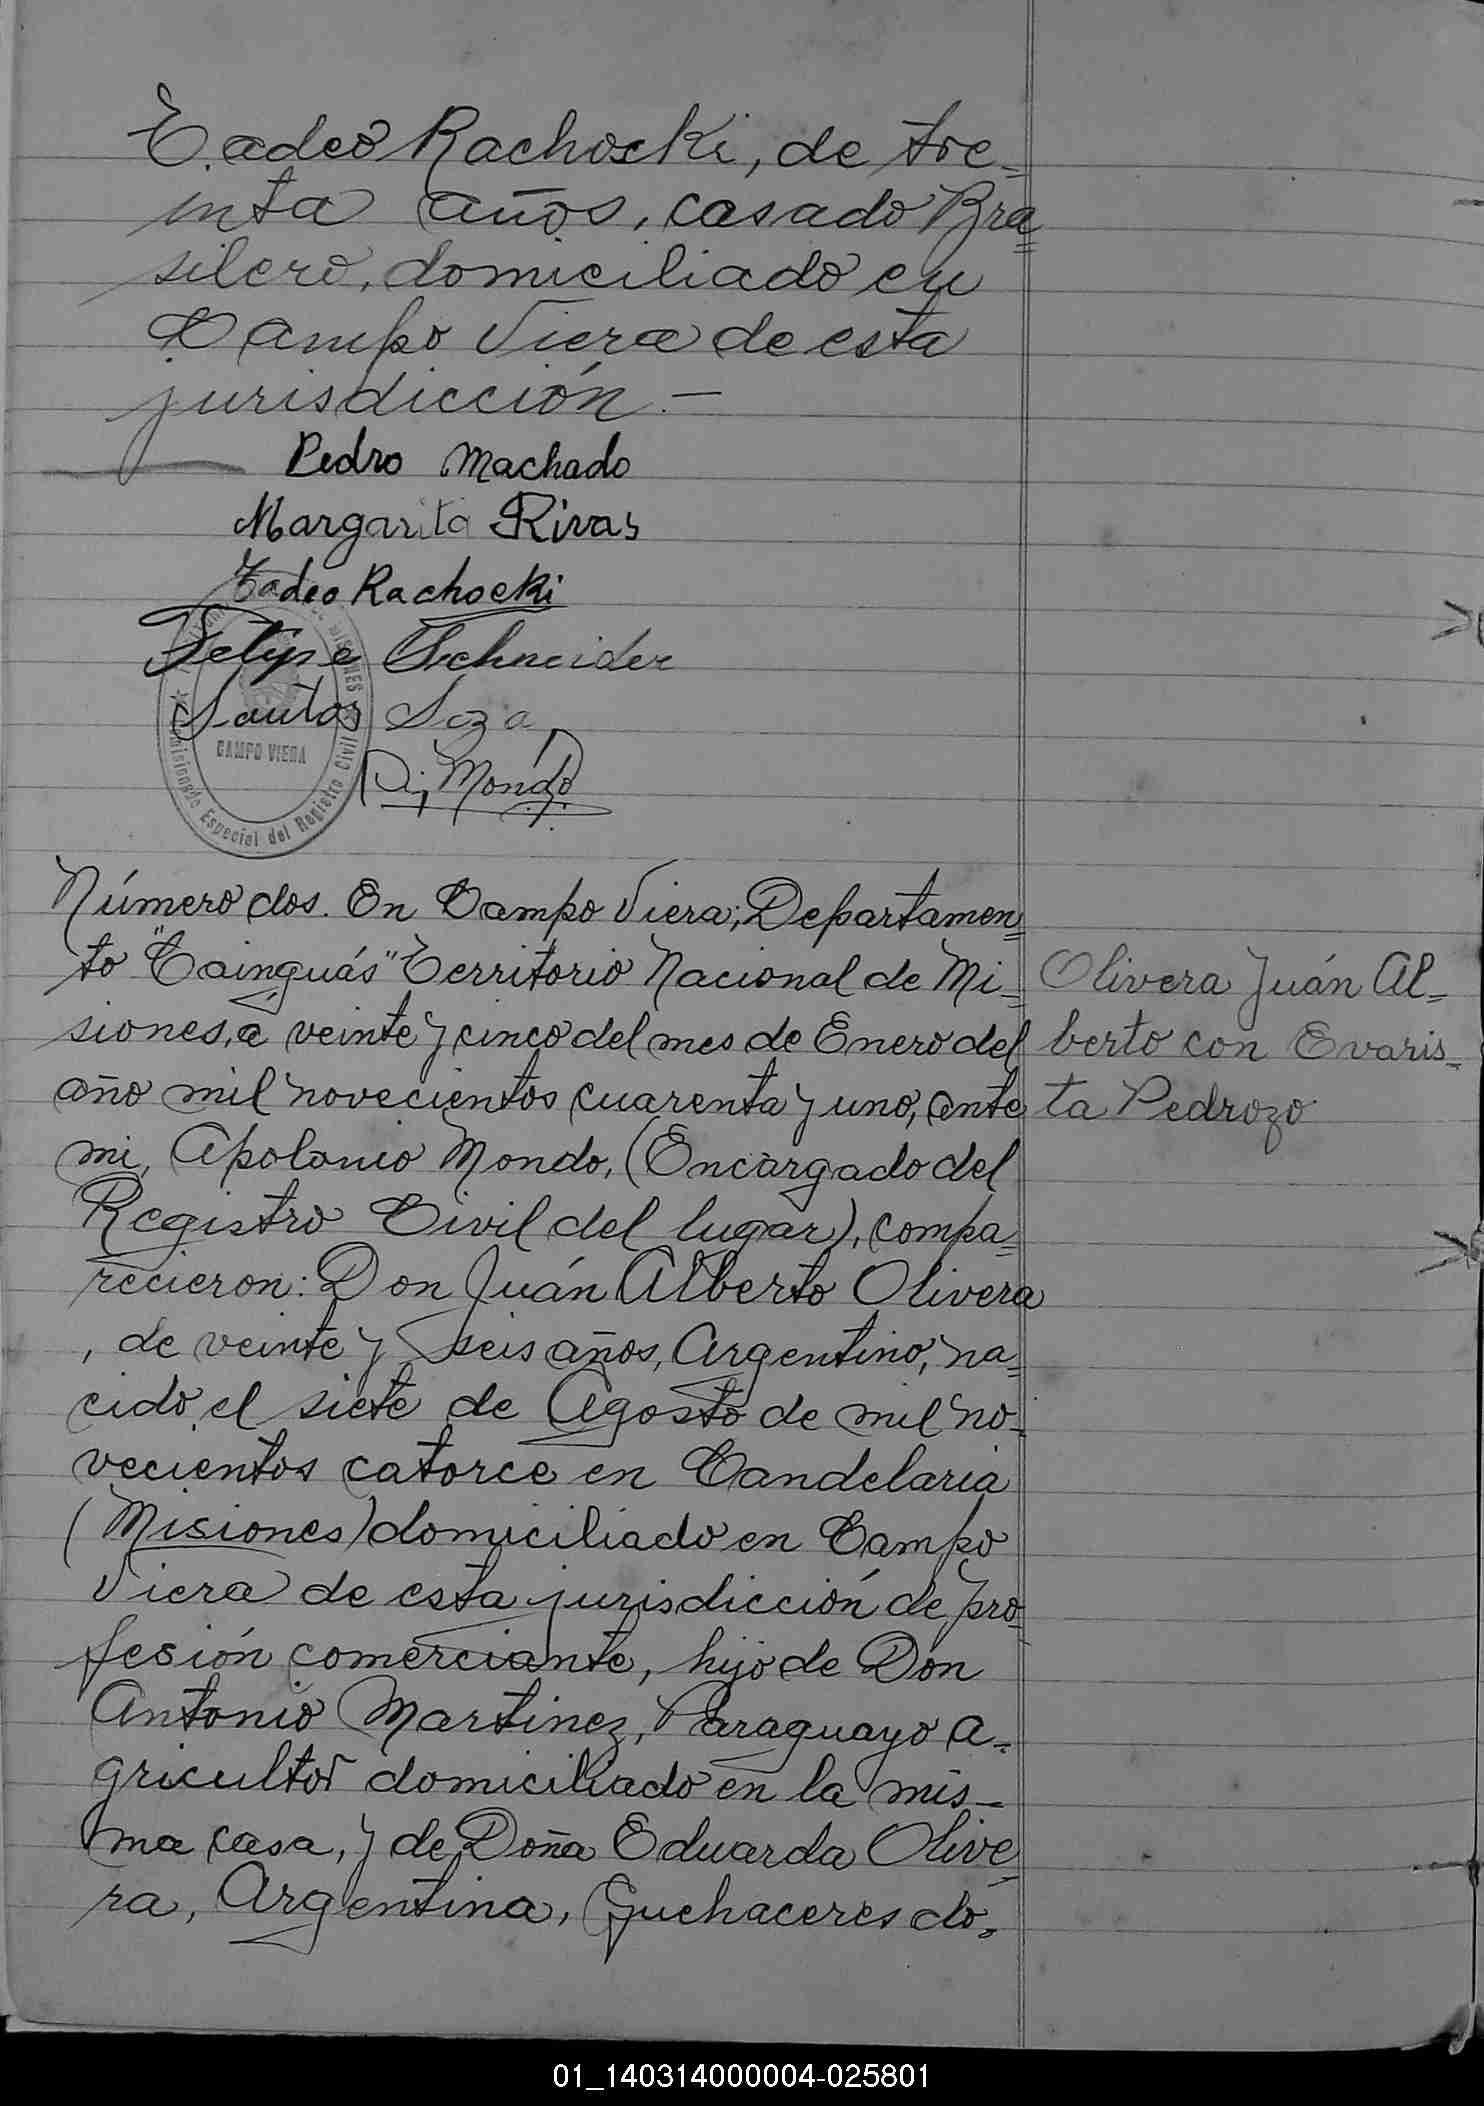 Tadeo Rachocki, de tre=
inta años, casado Bra=
silero, domiciliado en
Campo Viera de esta
jurisdicción.—
Pedro Machado
Margarita Rivas
Tadeo Rachocki
Felipe Schneider
Santos Soza
Mondo
MISIONES
CAMPO VIERA
Especial del Registro Civil
Número dos. En Campo Viera; Departamen=
to "Cainguás" Territorio Nacional de Mi=
siones, a veinte y cinco del mes de Enero del
año mil novecientos cuarenta y uno, ante
mi, Apolonio Mondo, (Encargado del
Registro Civil del lugar), compa=
recieron: Don Juán Alberto Olivera
, de veinte y seis años, Argentino, na=
cido el siete de Agosto de mil no=
vecientos catorce en Candelaria
(Misiones) domiciliado en Campo
Viera de esta jurisdicción de pro
fesión comerciante, hijo de Don
Antonio Martinez, Paraguayo a=
gricultor domiciliado en la mis=
ma casa, y de Doña Eduarda Olive
ra, Argentina, Quehaceres do=
Olivera Juán Al=
berto con Evaris=
ta Pedrozo
01_140314000004-025801